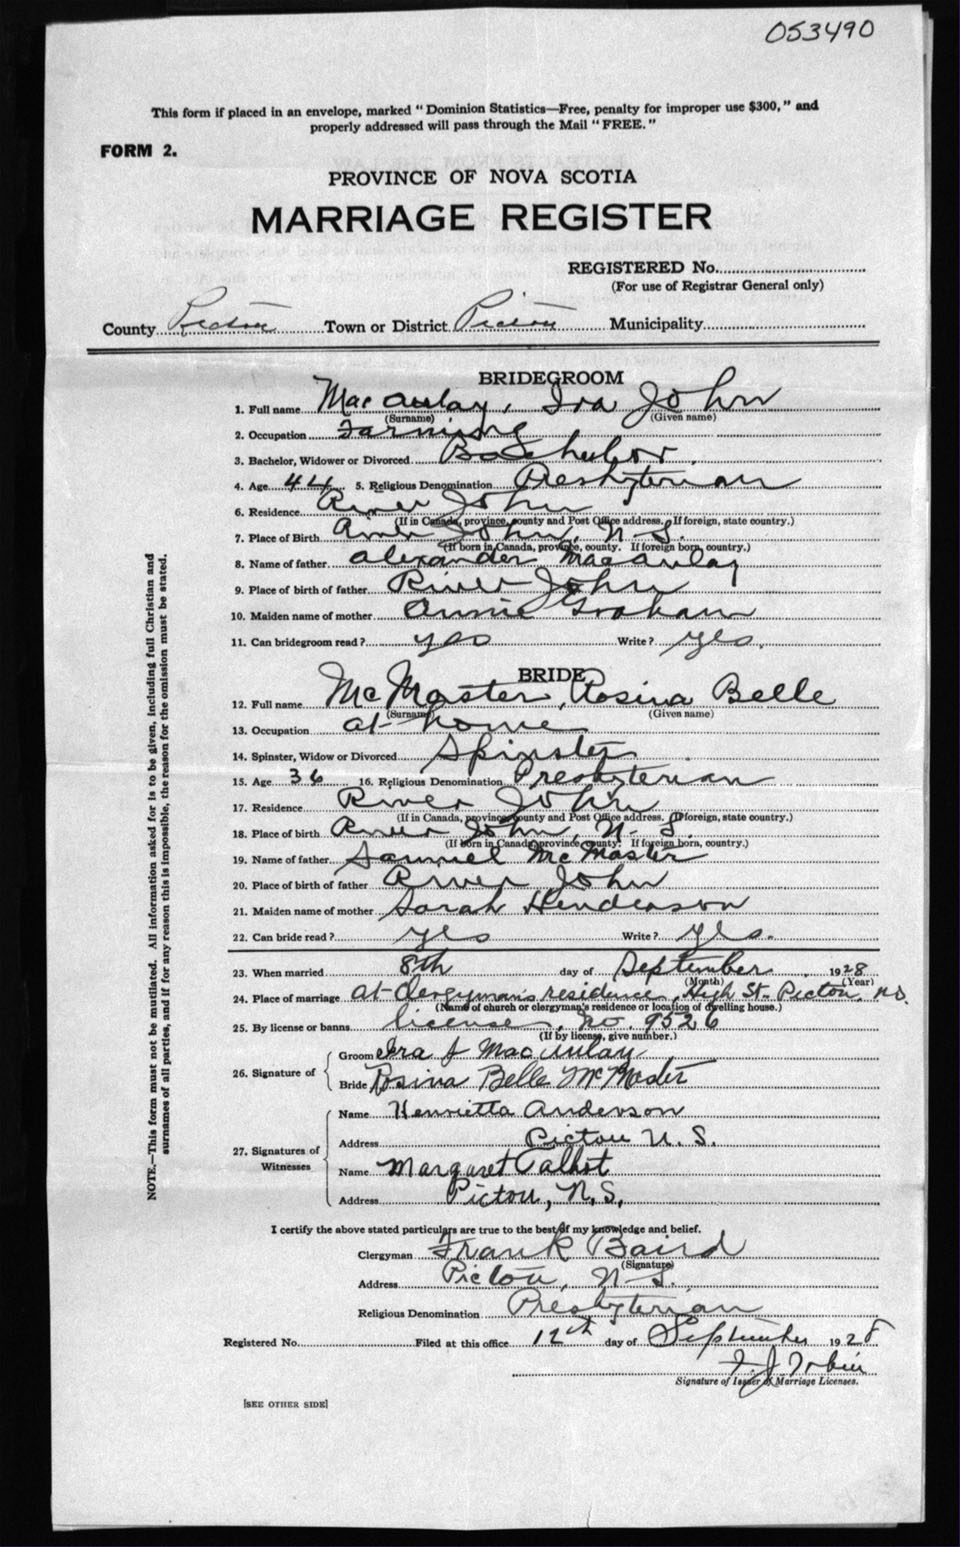 053490
This form if placed in an envelope, marked "Dominion Statistics—Free, penalty for improper use $300," and
properly addressed will pass through the Mail "FREE."
FORM 2.
PROVINCE OF NOVA SCOTIA
MARRIAGE REGISTER
REGISTERED No.
(For use of Registrar General only)
County Pictou Town or District Pictou Municipality
BRIDEGROOM
1. Full name MacAulay, Ira John
(Surname) (Given name)
2. Occupation Farming
3. Bachelor, Widower or Divorced Bachelor
4. Age 44 5. Religious Denomination Presbyterian
6. Residence River John
(If in Canada, province, county and Post Office address. If foreign, state country.)
7. Place of Birth River John, N.S.
(If born in Canada, province, county. If foreign born, country.)
8. Name of father Alexander MacAulay
9. Place of birth of father River John
10. Maiden name of mother Annie Graham
11. Can bridegroom read? yes Write? yes.
BRIDE
12. Full name McMaster, Rosina Belle
(Surname) (Given name)
13. Occupation at home
14. Spinster, Widow or Divorced Spinster
15. Age 36 16. Religious Denomination Presbyterian
17. Residence River John
(If in Canada, province, county and Post Office address. If foreign, state country.)
18. Place of birth River John, N.S.
(If born in Canada, province, county. If foreign born, country.)
19. Name of father Samuel McMaster
20. Place of birth of father River John
21. Maiden name of mother Sarah Henderson
22. Can bride read? yes Write? yes.
23. When married 8th day of September 1928
(Month) (Year)
24. Place of marriage at Clergyman's residence, High St. Pictou, N.S.
(Name of church or clergyman's residence or location of dwelling house.)
25. By license or banns license, no. 9526
(If by license, give number.)
26. Signature of
Groom Ira J MacAulay
Bride Rosina Belle McMaster
27. Signatures of Witnesses
Name Henrietta Anderson
Address Pictou N.S.
Name Margaret Talbot
Address Pictou, N.S.
I certify the above stated particulars are true to the best of my knowledge and belief.
Clergyman Frank Baird
(Signature)
Address Pictou, N.S.
Religious Denomination Presbyterian
Registered No. Filed at this office 12th day of September 1928
J. Tobin
Signature of Issuer of Marriage Licenses.
[SEE OTHER SIDE]
NOTE.—This form must not be mutilated. All information asked for is to be given, including full Christian and
surnames of all parties, and if for any reason this is impossible, the reason for the omission must be stated.